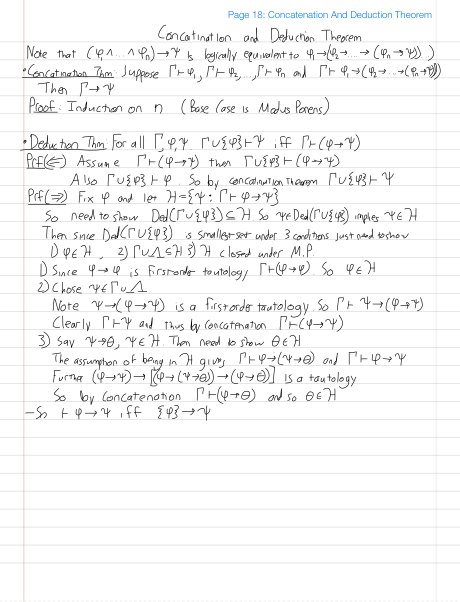 Page 18: Concatenation And Deduction Theorem
Concatination and Deduction Theorem
Note that (φ₁∧...∧φₙ)→ψ is logically equivalent to φ₁→(φ₂→...→(φₙ→ψ))
• Concatination Thm: Suppose Γ⊢φ₁, Γ⊢φ₂,...,Γ⊢φₙ and Γ⊢φ₁→(φ₂→...→(φₙ→ψ))
Then Γ→ψ
Proof: Induction on n (Base Case is Modus Ponens)
• Deduction Thm: For all Γ,φ,ψ Γ∪{φ}⊢ψ iff Γ⊢(φ→ψ)
Prf(⇐) Assume Γ⊢(φ→ψ) then Γ∪{φ}⊢(φ→ψ)
Also Γ∪{φ}⊢φ So by concatination theorem Γ∪{φ}⊢ψ
Prf(⇒) Fix φ and let H={ψ: Γ⊢φ→ψ}
So need to show Ded(Γ∪{φ})⊆H. So ψ∈Ded(Γ∪{φ}) implies ψ∈H
Then since Ded(Γ∪{φ}) is smallest set under 3 conditions just need to show
1) φ∈H, 2) Γ∪Λ⊆H 3) H closed under M.P.
1) Since φ→φ is first-order tautology Γ⊢(φ→φ) So φ∈H
2) Chose ψ∈Γ∪Λ
Note ψ→(φ→ψ) is a first order tautology So Γ⊢ψ→(φ→ψ)
Clearly Γ⊢ψ and thus by concatenation Γ⊢(φ→ψ)
3) Say ψ→θ, ψ∈H. Then need to show θ∈H
The assumption of being in H gives Γ⊢φ→(ψ→θ) and Γ⊢φ→ψ
Further (φ→ψ)→[(φ→(ψ→θ))→(φ→θ)] is a tautology
So by Concatenation Γ⊢(φ→θ) and so θ∈H
– So ⊢φ→ψ iff {φ}→ψ